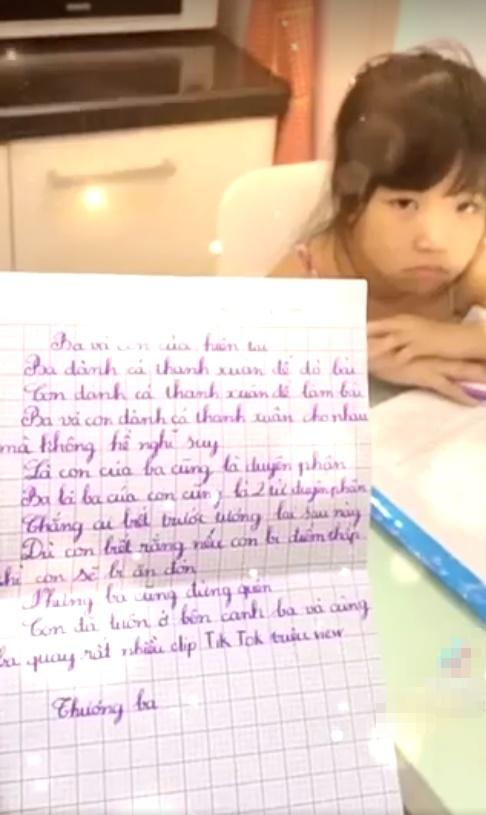 Ba và con của hiện tại
Ba dành cả thanh xuân để dò bài
Con dành cả thanh xuân để làm bài
Ba và con dành cả thanh xuân cho nhau
mà không hề nghĩ suy
Là con của ba cũng là duyên phận
Ba là ba của con cũng là 2 từ duyên phận
Chẳng ai biết trước tương lai sau này
Dù con biết rằng nếu con bị điểm thấp
thì con sẽ bị ăn đòn
Nhưng ba cũng đừng quên
Con đã luôn ở bên cạnh ba và cùng
ba quay rất nhiều clip Tik Tok triệu view
Thương ba